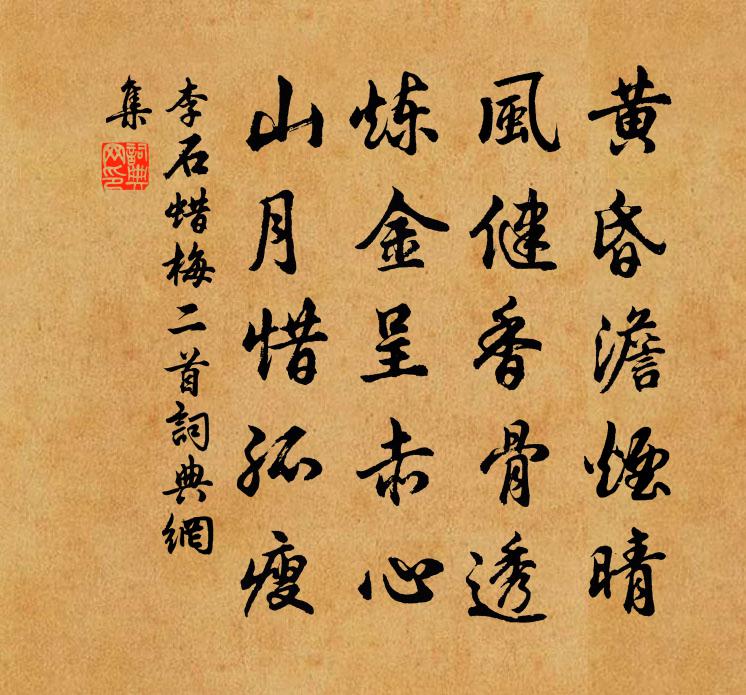 黄昏澹煙晴
風健香骨透
炼金呈赤心
山月惜孤瘦
李石蜡梅二首詞典網
集
詞典網印